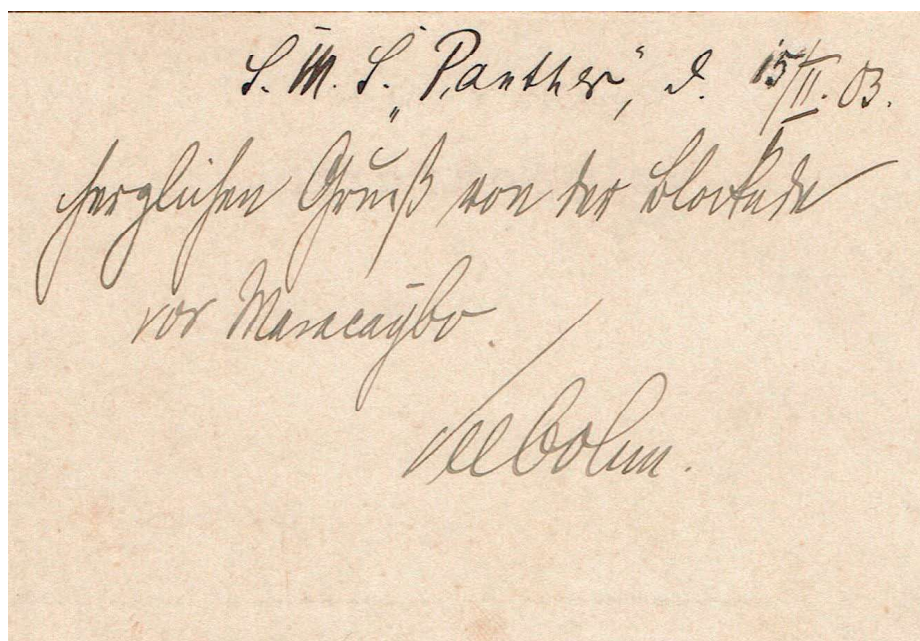 S. M. S. „Panther“, d. 15/II. 03.
Herzlichen Gruß von der Blockade
vor Maracaÿbo.
Seebohm.